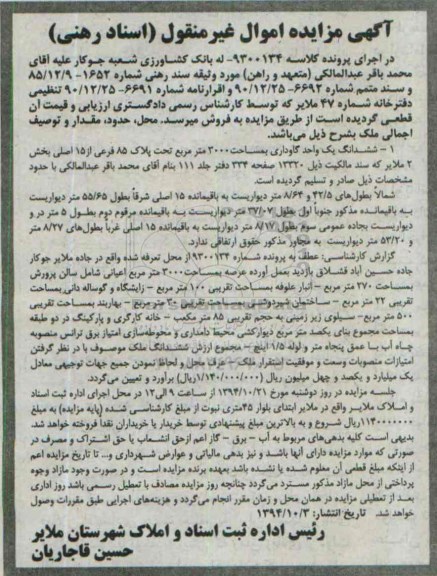 آگهی مزایده اموال غیرمنقول (اسناد رهنی)
در اجرای پرونده کلاسه ۹۳۰۰۱۳۴- له بانک کشاورزی شعبه جوکار علیه آقای
محمد باقر عبدالمالکی (متعهد و راهن) مورد وثیقه سند رهنی شماره ۱۶۵۲- ۸۵/۱۲/۹
و سند متمم شماره ۶۶۹۲- ۹۰/۱۲/۲۵ و اقرارنامه شماره ۶۶۹۱- ۹۰/۱۲/۲۵ تنظیمی
دفترخانه شماره ۴۷ ملایر که توسط کارشناس رسمی دادگستری ارزیابی و قیمت آن
قطعی گردیده است از طریق مزایده به فروش میرسد. محل، حدود، مقدار و توصیف
اجمالی ملک بشرح ذیل می‌باشد.
۱ - ششدانگ یک واحد گاوداری بمساحت ۳۰۰۰ متر مربع تحت پلاک ۸۵ فرعی از ۱۵ اصلی بخش
۲ ملایر که سند مالکیت ذیل ۱۳۳۲۰ صفحه ۳۳۴ دفتر جلد ۱۱۱ بنام آقای محمد باقر عبدالمالکی با حدود
مشخصات ذیل صادر و تسلیم گردیده است.
شمالاً بطول‌های ۴۲/۵ و ۸/۶۴ متر دیواریست به باقیمانده ۱۵ اصلی شرقاً بطول ۵۵/۶۵ متر دیواریست
به باقیمانده مذکور جنوباً اول بطول ۳۷/۰۷ متر دیواریست به باقیمانده مرقوم دوم بطول ۵ متر در و
دیواریست بجاده عمومی سوم بطول ۸/۱۷ متر دیواریست به باقیمانده ۱۵ اصلی غرباً بطول‌های ۸/۲۷ متر
و ۵۳/۲۰ متر دیواریست به مجاور مذکور حقوق ارتفاقی ندارد.
گزارش کارشناسی: عطف به پرونده شماره ۹۳۰۰۱۳۴ از محل تعرفه شده واقع در جاده ملایر جوکار
جاده حسین آباد قشلاق بازدید بعمل آورده عرصه بمساحت ۳۰۰۰ متر مربع اعیانی شامل سالن پرورش
بمساحت ۲۷۰ متر مربع - انبار علوفه بمساحت تقریبی ۱۰۰ متر مربع - زایشگاه و گوساله دانی بمساحت
تقریبی ۲۲ متر مربع - ساختمان شیردوشی بمساحت تقریبی ۳۰ متر مربع - بهاربند بمساحت تقریبی
۵۰۰ متر مربع - سیلوی زیر زمینی به حجم تقریبی ۸۵ متر مکعب - خانه کارگری و پارکینگ در دو طبقه
بمساحت مجموع بنای یکصد متر مربع دیوارکشی محیط دامداری و محوطه‌سازی امتیاز برق ترانس منصوبه
چاه آب با عمق پنجاه متر و لوله ۱/۵ اینچ - مجموع ارزش ششدانگ ملک موصوف با در نظر گرفتن
امتیازات منصوبات وسعت و موقعیت استقرار ملک - عرف محل و لحاظ نمودن جمیع جهات توجیهی معادل
یک میلیارد و یکصد و چهل میلیون ریال (۱/۱۴۰/۰۰۰/۰۰۰ریال) برآورد و تعیین می‌گردد.
جلسه مزایده در روز دوشنبه مورخ ۱۳۹۴/۱۰/۲۱ از ساعت ۹ الی ۱۲ در محل اجرای اداره ثبت اسناد
و املاک ملایر واقع در ملایر ابتدای بلوار ۴۵متری نبوت از مبلغ کارشناسی شده (پایه مزایده) به مبلغ
۱۱۴۰۰۰۰۰۰۰ریال شروع و به بالاترین مبلغ پیشنهادی توسط خریدار یا خریداران نقداً فروخته خواهد شد.
بدیهی است کلیه بدهی‌های مربوط به آب - برق - گاز اعم ازحق انشعاب یا حق اشتراک و مصرف در
صورتی که موارد مزایده دارای آنها باشد و نیز بدهی مالیاتی و عوارض شهرداری و... تا تاریخ مزایده اعم
از اینکه مبلغ قطعی آن معلوم شده یا نشده باشد بعهده برنده مزایده است و در صورت وجود مازاد وجوه
پرداختی از محل مازاد مذکور مسترد می‌گردد چنانچه روز مزایده مصادف با تعطیل رسمی باشد روز اداری
بعد از تعطیلی مزایده در همان محل و زمان مقرر انجام می‌گردد و هزینه‌های اجرایی طبق مقررات وصول
خواهد شد. تاریخ انتشار: ۱۳۹۴/۱۰/۳
رئیس اداره ثبت اسناد و املاک شهرستان ملایر
حسین قاجاریان